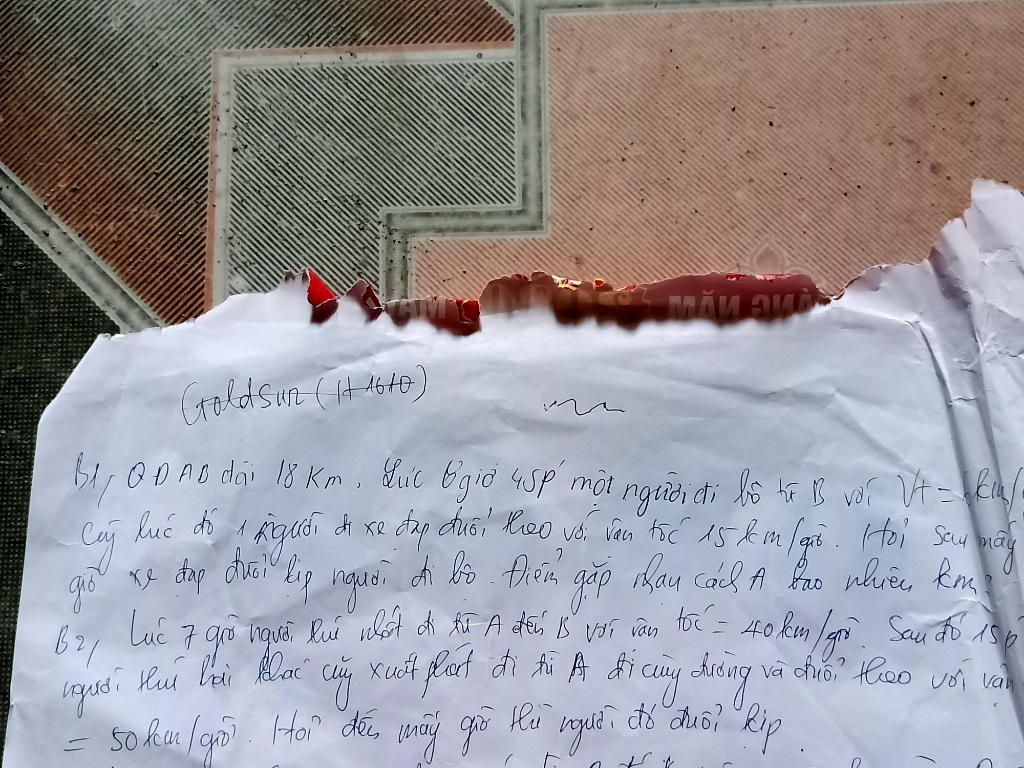 MẮN
MẮN
NĂM
Goldsun (H 1610)
B1, QĐ AB dài 18 Km. Lúc 6 giờ 45p một người đi bộ từ B với Vt = km/
Cùg lúc đó 1 người đi xe đạp đuổi theo với vân tốc 15 km/giờ. Hỏi sau mấy
giờ xe đạp đuổi kịp người đi bộ. Điểm gặp nhau cách A bao nhiêu km?
B2, Lúc 7 giờ người thứ nhất đi từ A đến B với vân tốc = 40 km/giờ. Sau đó 15p
người thứ hai khác cũg xuất phát đi từ A đi cùng đường và đuổi theo với vân
= 50 km/giờ. Hỏi đến mấy giờ thì người đó đuổi kịp